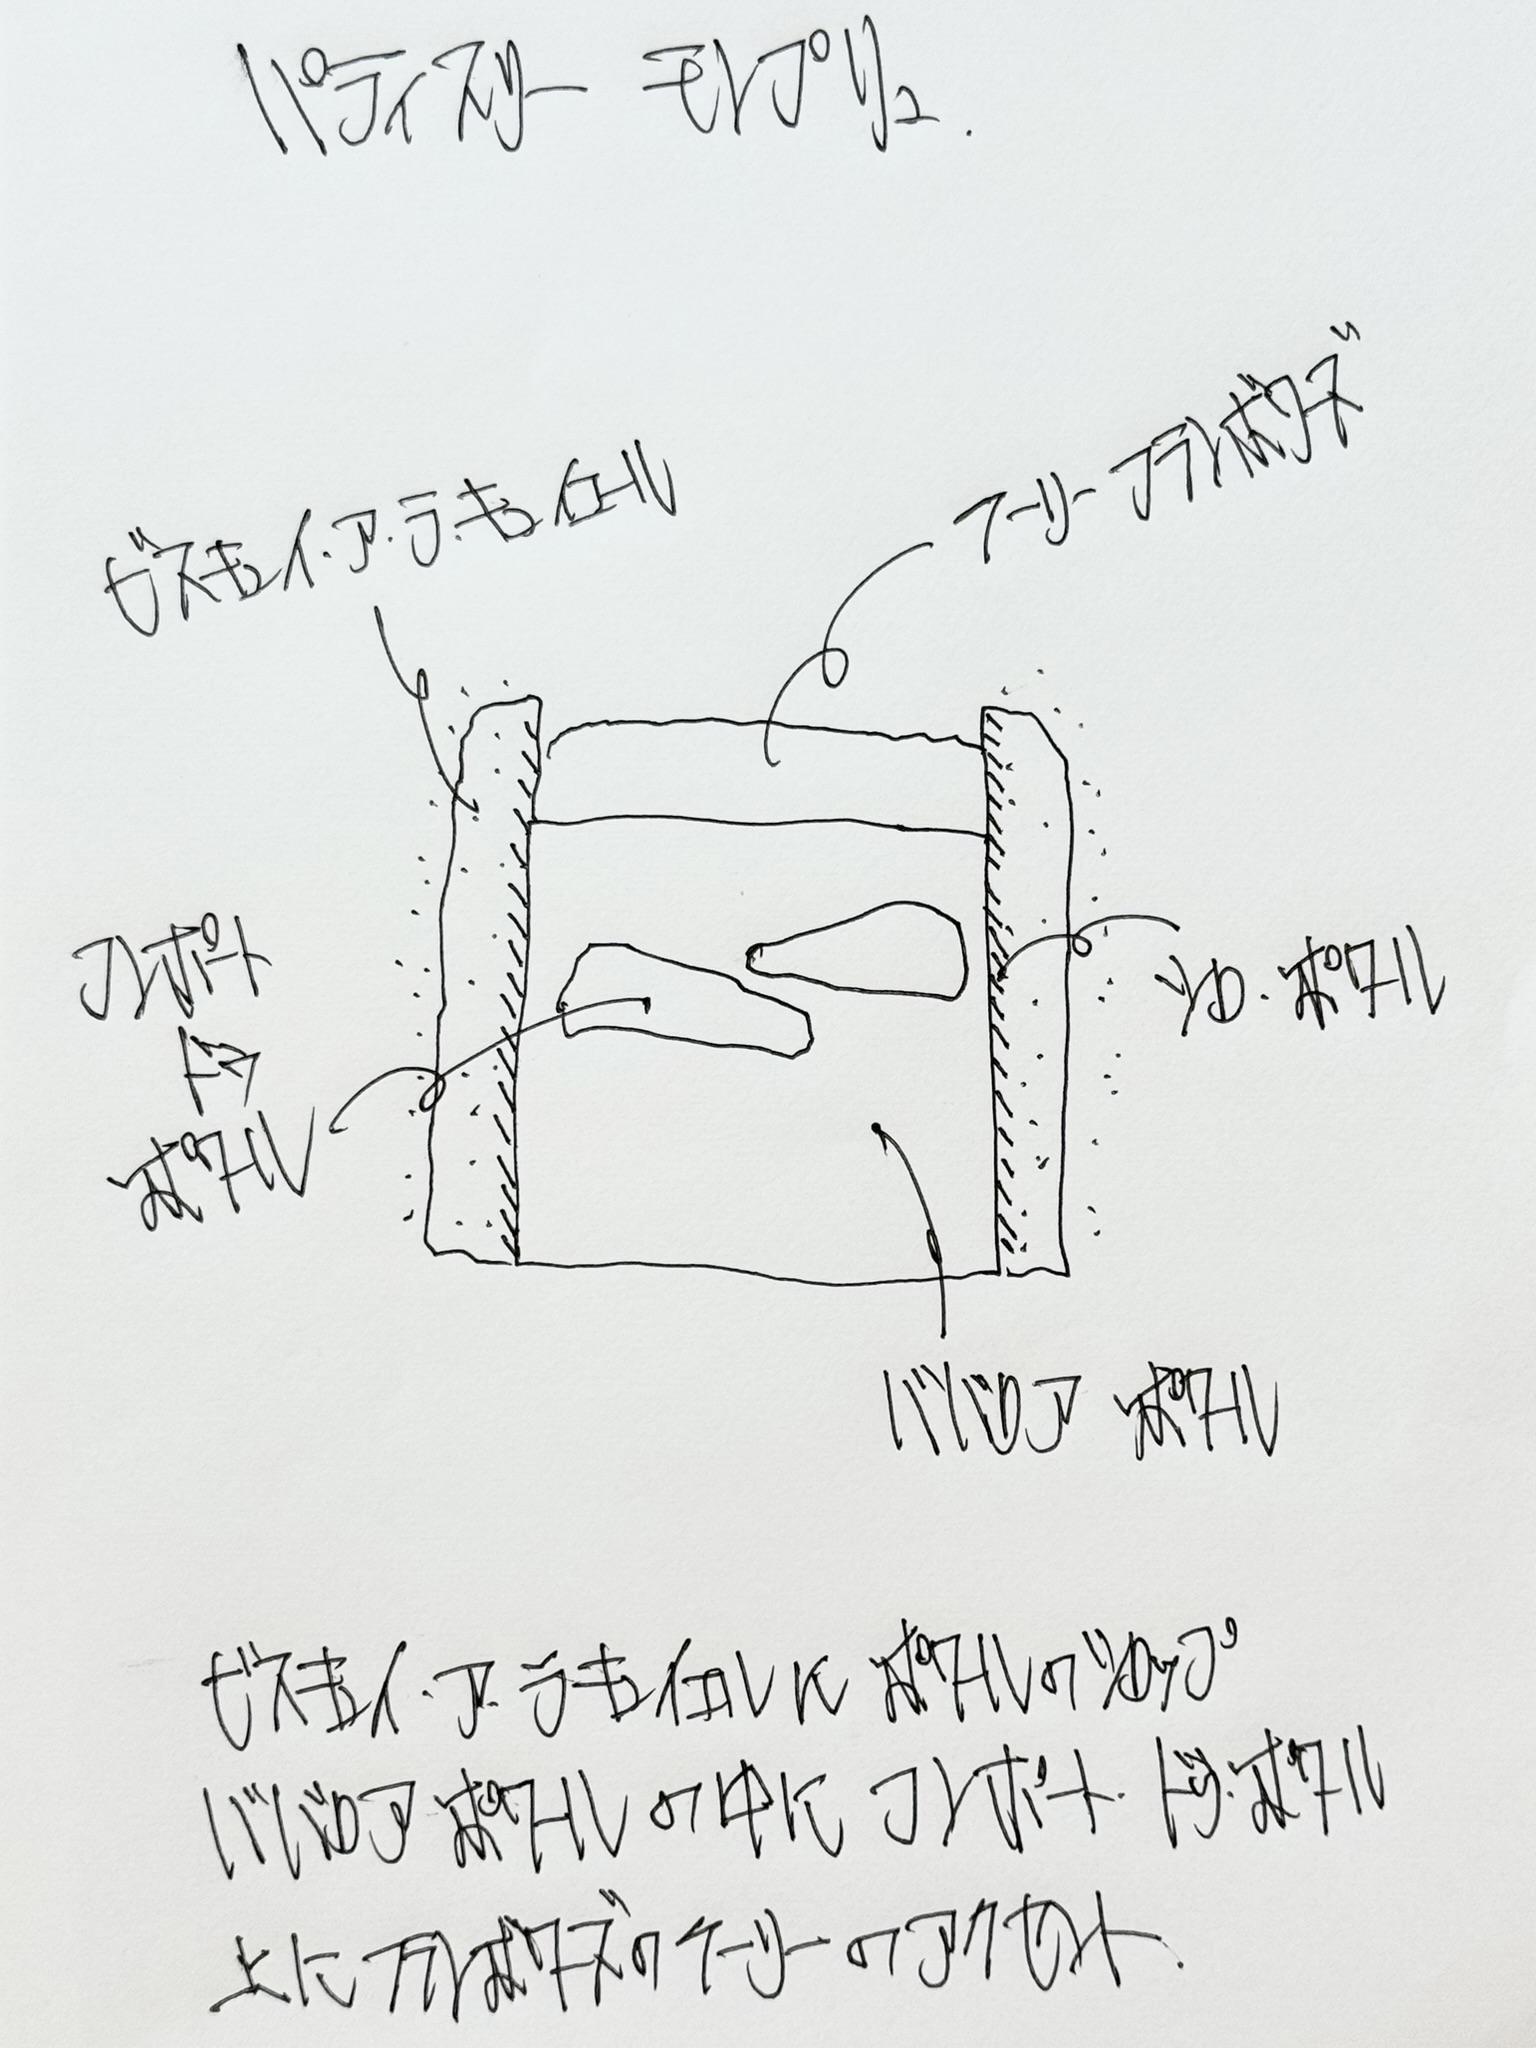 パティスリー モンプリュ.
クーリー フランボワーズ
ビスキュイ・ア・ラ・キュイエール
コンポート
ドゥ
ポワール
シロ・ポワール
ババロア ポワール
ビスキュイ・ア・ラ・キュイエールに ポワールのシロップ
ババロア ポワールの中に コンポート・ドゥ・ポワール
上に フランボワーズのクーリーのアクセント.